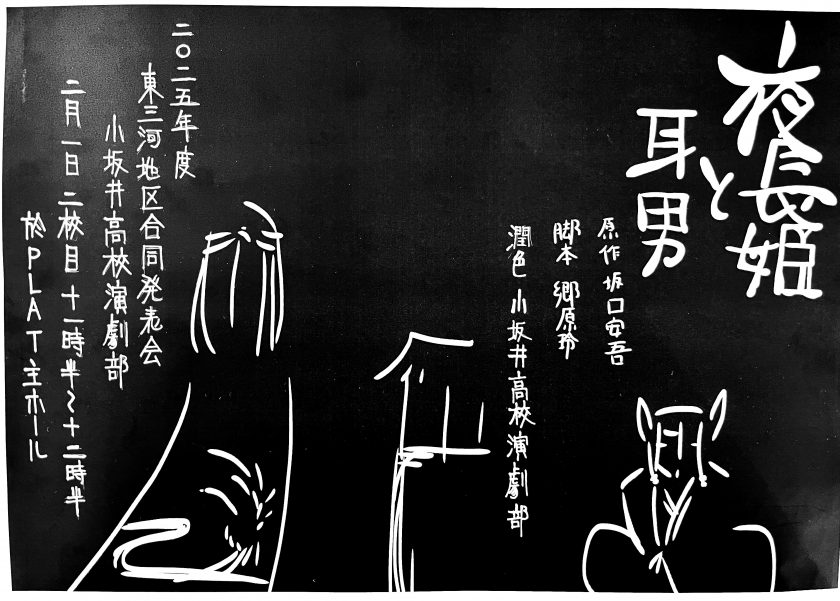 夜長姫
と
耳男
原作 坂口安吾
脚本 郷原玲
潤色 小坂井高校演劇部
二〇二五年度
東三河地区合同発表会
小坂井高校演劇部
二月一日 二校目 十一時半〜十二時半
於PLAT主ホール